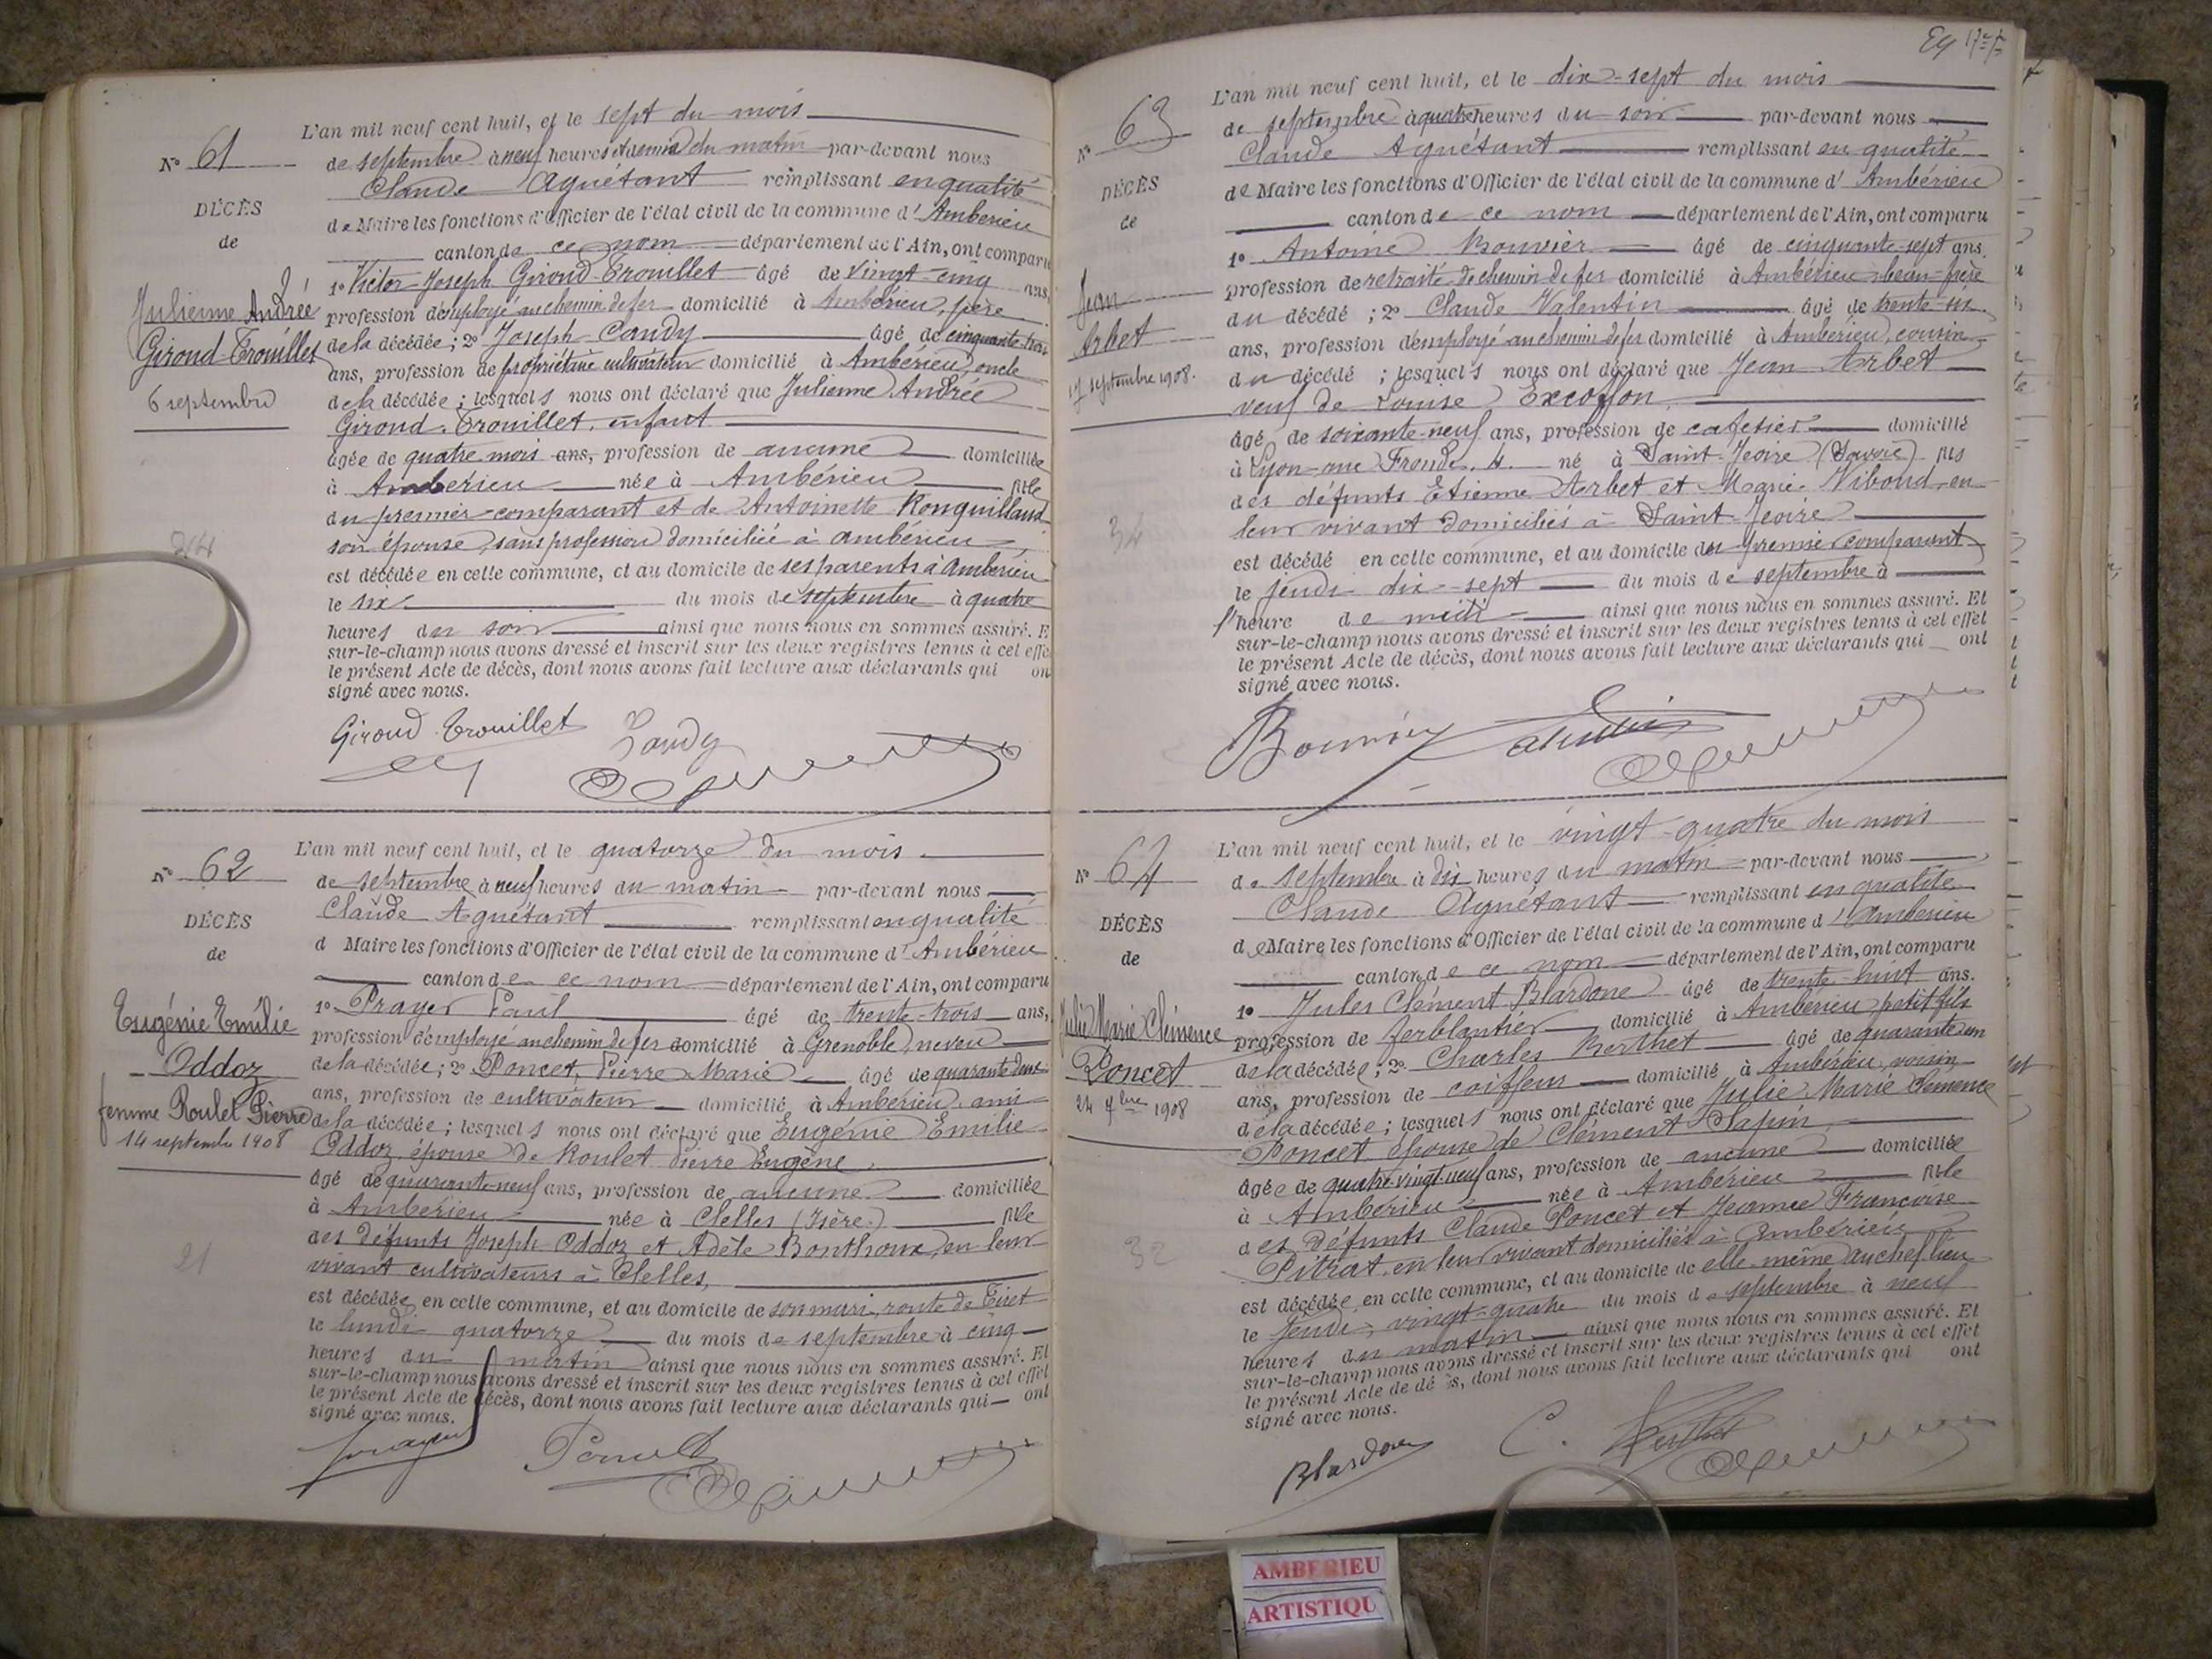 L'an mil neuf cent huit, et le sept du mois
N° 61
de septembre à neuf heures et demie du matin par-devant nous
Claude Aguétant remplissant en qualité
DÉCÈS
de Maire les fonctions d'Officier de l'état civil de la commune d'Ambérieu
de
canton de ce nom département de l'Ain, ont comparu
1° Victor Joseph Giroud-Trouillet âgé de vingt-cinq ans,
Julienne Andrée
profession d'employé au chemin de fer domicilié à Ambérieu, père
Giroud-Trouilles
de la décédée; 2° Joseph Candy âgé de cinquante-trois
ans, profession de propriétaire cultivateur domicilié à Ambérieu, oncle
6 septembre
de la décédée; lesquels nous ont déclaré que Julienne Andrée
Giroud-Trouillet, enfant
âgée de quatre mois ans, profession de aucune domiciliée
à Ambérieu née à Ambérieu fille
du premier comparant et de Antoinette Ronguillaud
24
son épouse, sans profession domiciliée à Ambérieu
est décédée en cette commune, et au domicile de ses parents à Ambérieu
le six du mois de septembre à quatre
heures du soir ainsi que nous nous en sommes assuré. E
sur-le-champ nous avons dressé et inscrit sur les deux registres tenus à cet effe
le présent Acte de décès, dont nous avons fait lecture aux déclarants qui on
signé avec nous.
Giroud Trouillet Candy
L'an mil neuf cent huit, et le quatorze du mois
N° 62
de septembre à neuf heures du matin par-devant nous
Claude Aguétant remplissant en qualité
DÉCÈS
d Maire les fonctions d'Officier de l'état civil de la commune d'Ambérieu
de
canton de ce nom département de l'Ain, ont comparu
1° Prayer Paul âgé de trente-trois ans,
Eugénie Emilie
profession d'employé au chemin de fer domicilié à Grenoble, neveu
Oddoz
de la décédée; 2° Poncet, Pierre Marie âgé de quarante deux
ans, profession de cultivateur domicilié à Ambérieu, ami
femme Roulet Pierre
de la décédée; lesquels nous ont déclaré que Eugénie Emilie
14 septembre 1908
Oddoz épouse de Roulet Pierre Eugène
âgé de quarante-neuf ans, profession de aucune domiciliée
à Ambérieu née à Clelles (Isère) fille
des défunts Joseph Oddoz et Adèle Bonthoux, en leur
21
vivant cultivateurs à Clelles,
est décédée en cette commune, et au domicile de son mari, route de Tiret
le lundi quatorze du mois de septembre à cinq
heures du matin ainsi que nous nous en sommes assuré. Et
sur-le-champ nous avons dressé et inscrit sur les deux registres tenus à cet effet
le présent Acte de décès, dont nous avons fait lecture aux déclarants qui ont
signé avec nous.
Poncet
L'an mil neuf cent huit, et le dix-sept du mois
N° 63
de septembre à quatre heures du soir par-devant nous
Claude Aguétant remplissant en qualité
DÉCÈS
de Maire les fonctions d'Officier de l'état civil de la commune d'Ambérieu
de
canton de ce nom département de l'Ain, ont comparu
1° Antoine Bouvier âgé de cinquante-sept ans,
Jean
profession de retraité de chemin de fer domicilié à Ambérieu, beau-frère
Arbet
du décédé; 2° Claude Valentin âgé de trente-six
ans, profession d'employé au chemin de fer domicilié à Ambérieu, cousin
17 septembre 1908.
du décédé; lesquels nous ont déclaré que Jean Arbet
veuf de Louise Excoffon,
âgé de soixante-neuf ans, profession de cafetier domicilié
à Lyon rue Fronde. 4. né à Saint-Jeoire (Savoie) fils
des défunts Etienne Arbet et Marie Viboud, en
34
leur vivant domiciliés à Saint-Jeoire
est décédé en cette commune, et au domicile du premier comparant
le jeudi dix-sept du mois de septembre à
l'heure de midi ainsi que nous nous en sommes assuré. Et
sur-le-champ nous avons dressé et inscrit sur les deux registres tenus à cet effet
le présent Acte de décès, dont nous avons fait lecture aux déclarants qui ont
signé avec nous.
Bouvier
L'an mil neuf cent huit, et le vingt-quatre du mois
N° 64
de septembre à dix heures du matin par-devant nous
Claude Aguétant remplissant en qualité
DÉCÈS
de Maire les fonctions d'Officier de l'état civil de la commune d'Ambérieu
de
canton de ce nom département de l'Ain, ont comparu
1° Jules Clément Blardone âgé de trente-huit ans.
Julie Marie Clémence
profession de ferblantier domicilié à Ambérieu, petit-fils
Poncet
de la décédée; 2° Charles Berthet âgé de quarante un
24 7bre 1908
ans, profession de coiffeur domicilié à Ambérieu, voisin
de la décédée; lesquels nous ont déclaré que Julie Marie Clémence
Poncet épouse de Clément Sapin,
âgée de quatre-vingt-neuf ans, profession de aucune domiciliée
à Ambérieu née à Ambérieu fille
des défunts Claude Poncet et Jeanne Françoise
32
Pitrat, en leur vivant domiciliés à Ambérieu
est décédée en cette commune, et au domicile de elle-même au chef-lieu
le jeudi vingt-quatre du mois de septembre à neuf
heures du matin ainsi que nous nous en sommes assuré. Et
sur-le-champ nous avons dressé et inscrit sur les deux registres tenus à cet effet
le présent Acte de décès, dont nous avons fait lecture aux déclarants qui ont
signé avec nous.
Blardone C. Berthet
AMBERIEU
ARTISTIQU